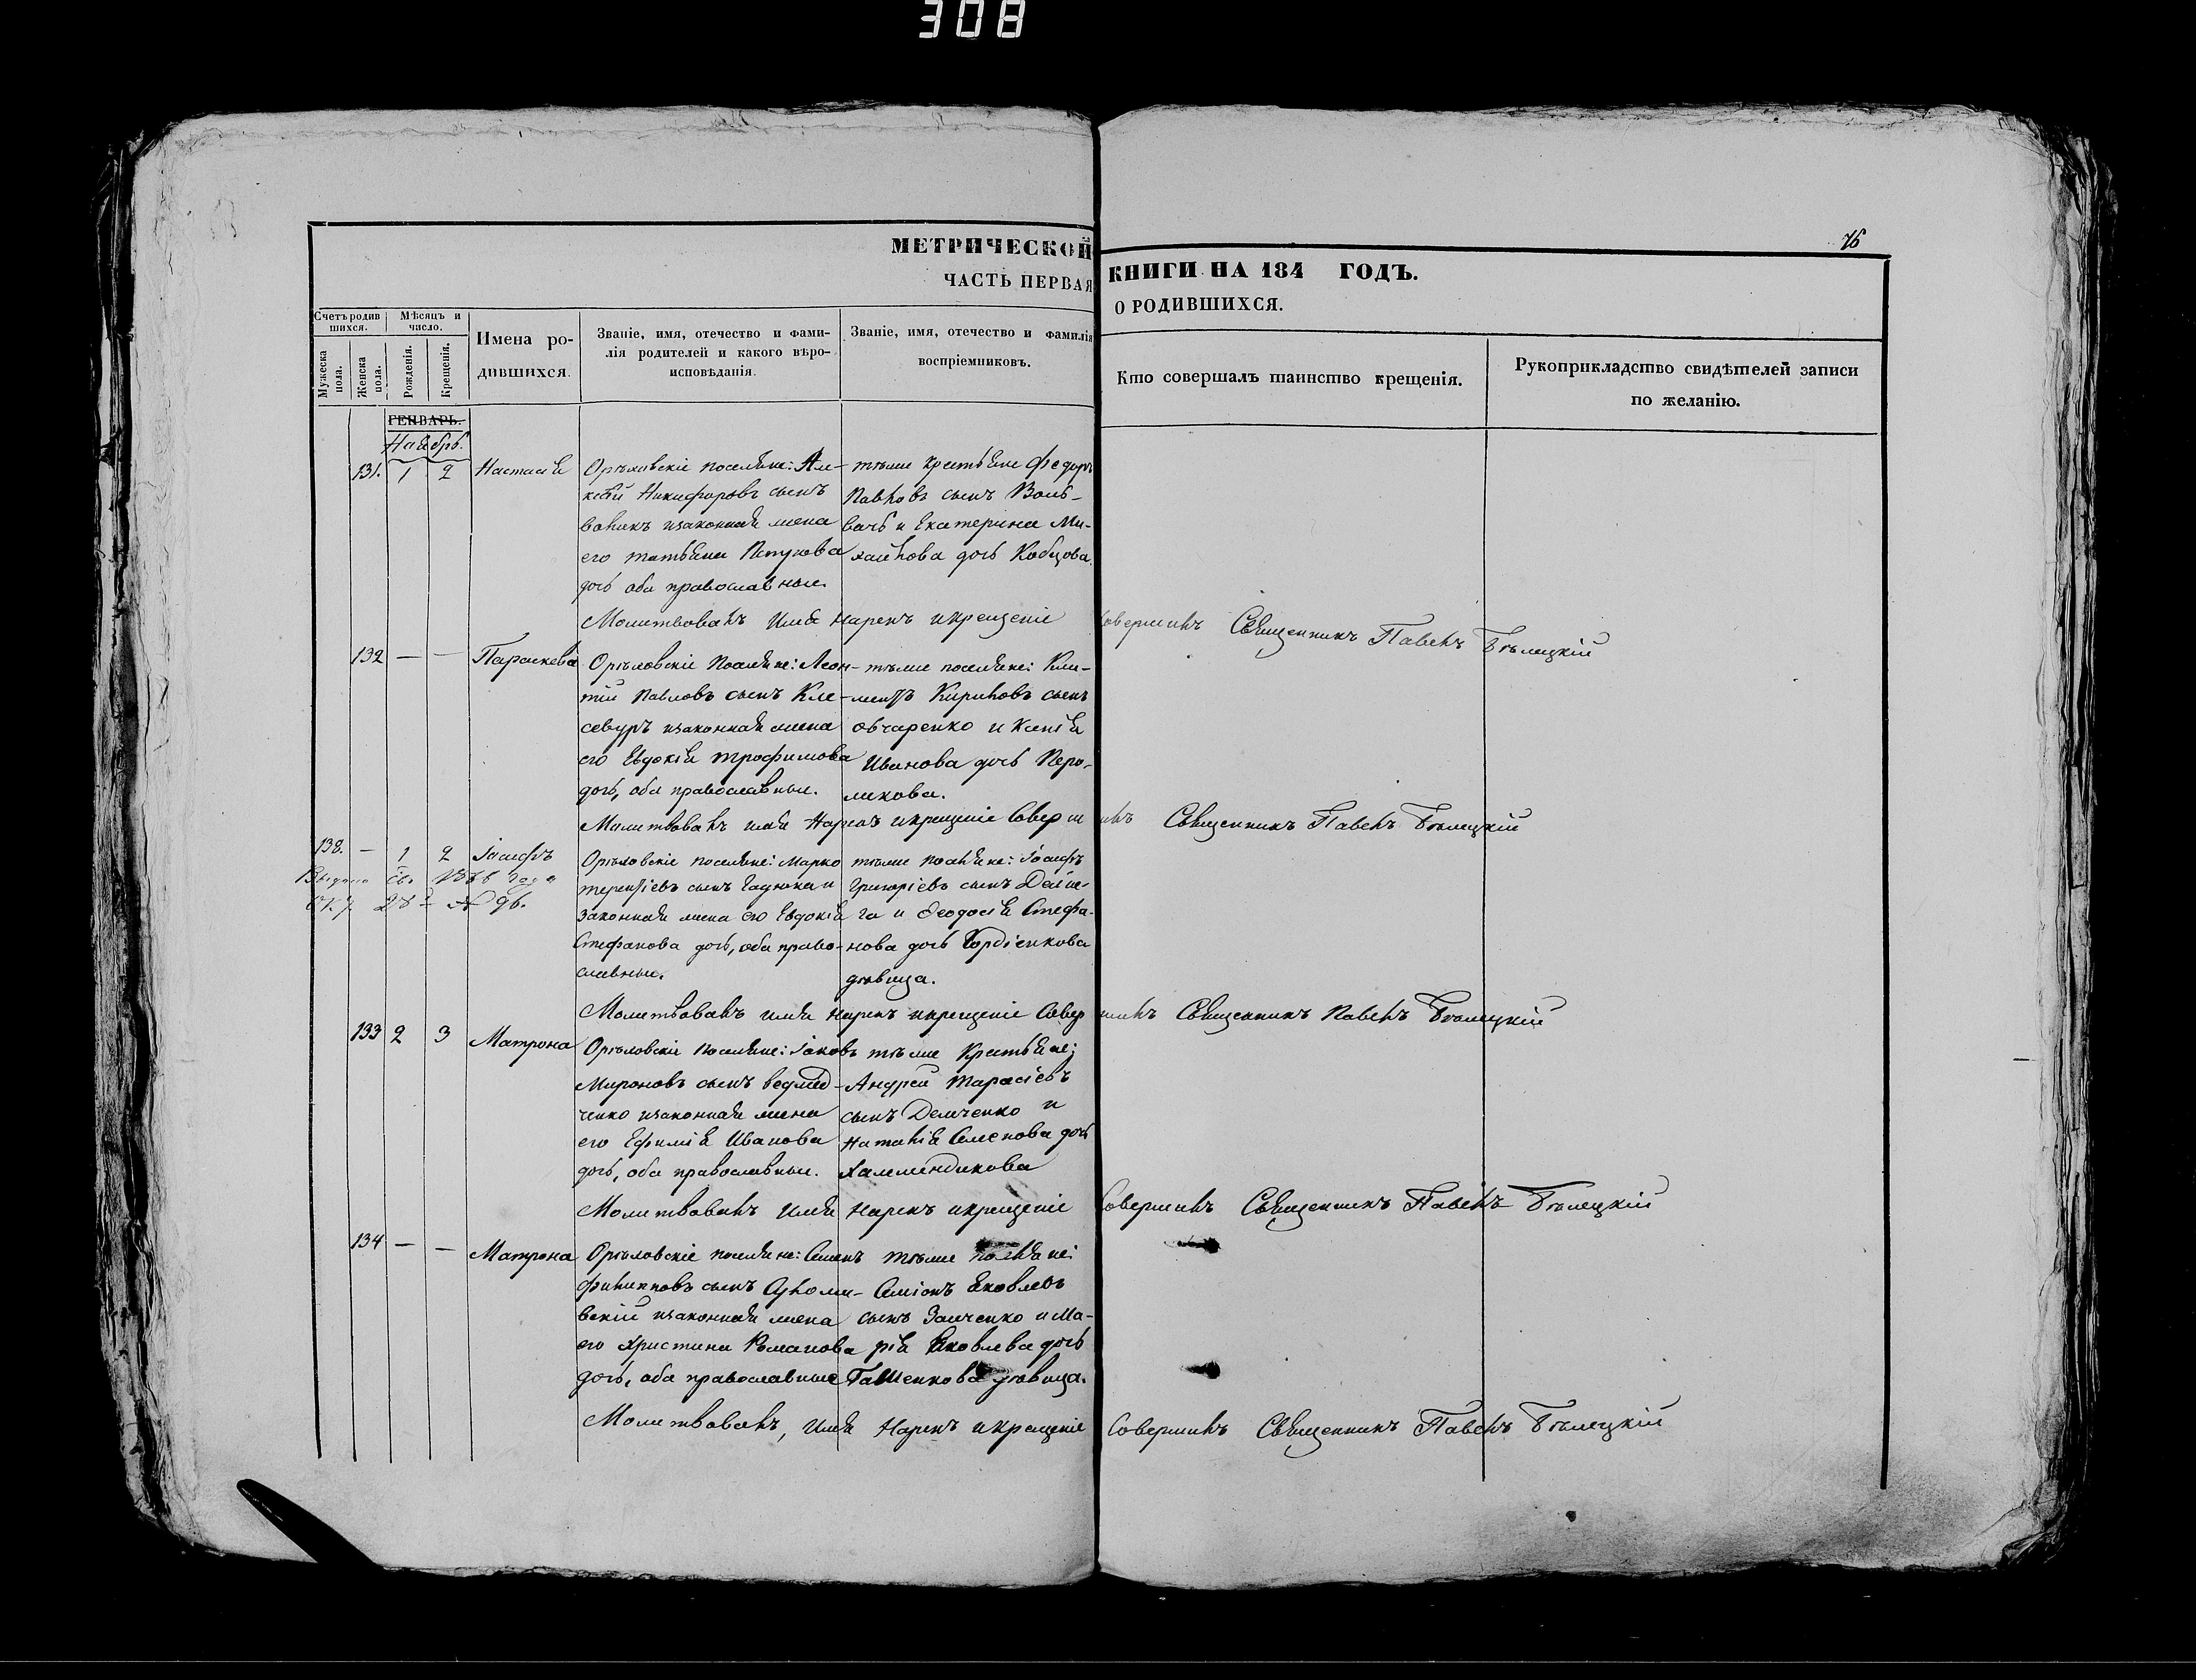 308
76
МЕТРИЧЕСКОЙ КНИГИ НА 184 ГОДЪ.
ЧАСТЬ ПЕРВАЯ О РОДИВШИХСЯ.
Счетъ родившихся.
Мѣсяцъ и число.
Мужеска пола.
Женска пола.
Рожденія.
Крещенія.
Имена родившихся.
Званіе, имя, отечество и фамилія родителей и какого вѣроисповѣданія.
Званіе, имя, отечество и фамилія воспріемниковъ.
Кто совершалъ таинство крещенія.
Рукоприкладство свидѣтелей записи по желанію.
ГЕНВАРЬ.
Ноябрь.
131. 1 2 Настасія
Орѣловскіе поселяне: Але-
ксѣй Никифоровъ сынъ
изаконная жена
его татьяна
дочь оба православные.
тѣже крестьяне Федоръ
Павловъ сынъ Воль-
вачь и Екатерина Ми-
хайлова дочь Кобцова.
Молитвовалъ имя нарекъ икрещеніе совершилъ Священникъ Павелъ Бѣлецкій
132 — — Параскевія
Орѣловскіе Поселяне: Леон-
тій Павловъ сынъ Кле-
севуръ изаконная жена
его Евдокія трофимова
дочь, оба православные.
тѣже поселяне: Кли-
ментъ Кириловъ сынъ
овчаренко и Ксенія
Иванова дочь
Молитвовалъ имя Нарекъ икрещеніе Совершилъ Священникъ Павелъ Бѣлецкій
138. — 1 2 Іосифъ
Орѣловскіе поселяне: Марко
терентіевъ сынъ Гадюка и
законная жена его Евдокія
Стефанова дочь, оба право-
славные.
тѣже поселяне: Іосифъ
Григоріевъ сынъ Дейне-
га и Феодосія Стефа-
нова дочь Гордіенкова
дѣвица.
Молитвовалъ имя нарекъ икрещеніе Совершилъ Священникъ Павелъ Бѣлецкій
133 2 3 Матрона
Орѣловскіе Поселяне: Іаковъ
Мироновъ сынъ ведмед-
ченко изаконная жена
его Ефимія Иванова
дочь, оба православные.
тѣже Крестьяне;
Андрей тарасіевъ
сынъ Демченко и
Наталія Семенова дочь
Молитвовалъ имя Нарекъ икрещеніе Совершилъ Священникъ Павелъ Бѣлецкій
134 — — Матрона
Орѣловскіе поселяне: Семенъ
филипповъ сынъ
изаконная жена
его христина Романова
дочь, оба православные
тѣже поселяне:
Симіонъ Яковлевъ
сынъ Заиченко и Ма-
рія Яковлева дочь
дѣвица.
Молитвовалъ, имя Нарекъ икрещеніе Совершилъ Священникъ Павелъ Бѣлецкій